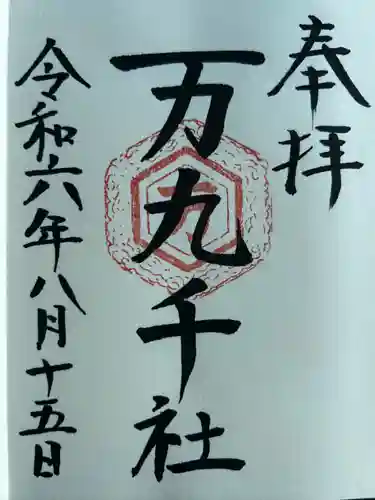 奉拝
万九千社
令和六年八月十五日